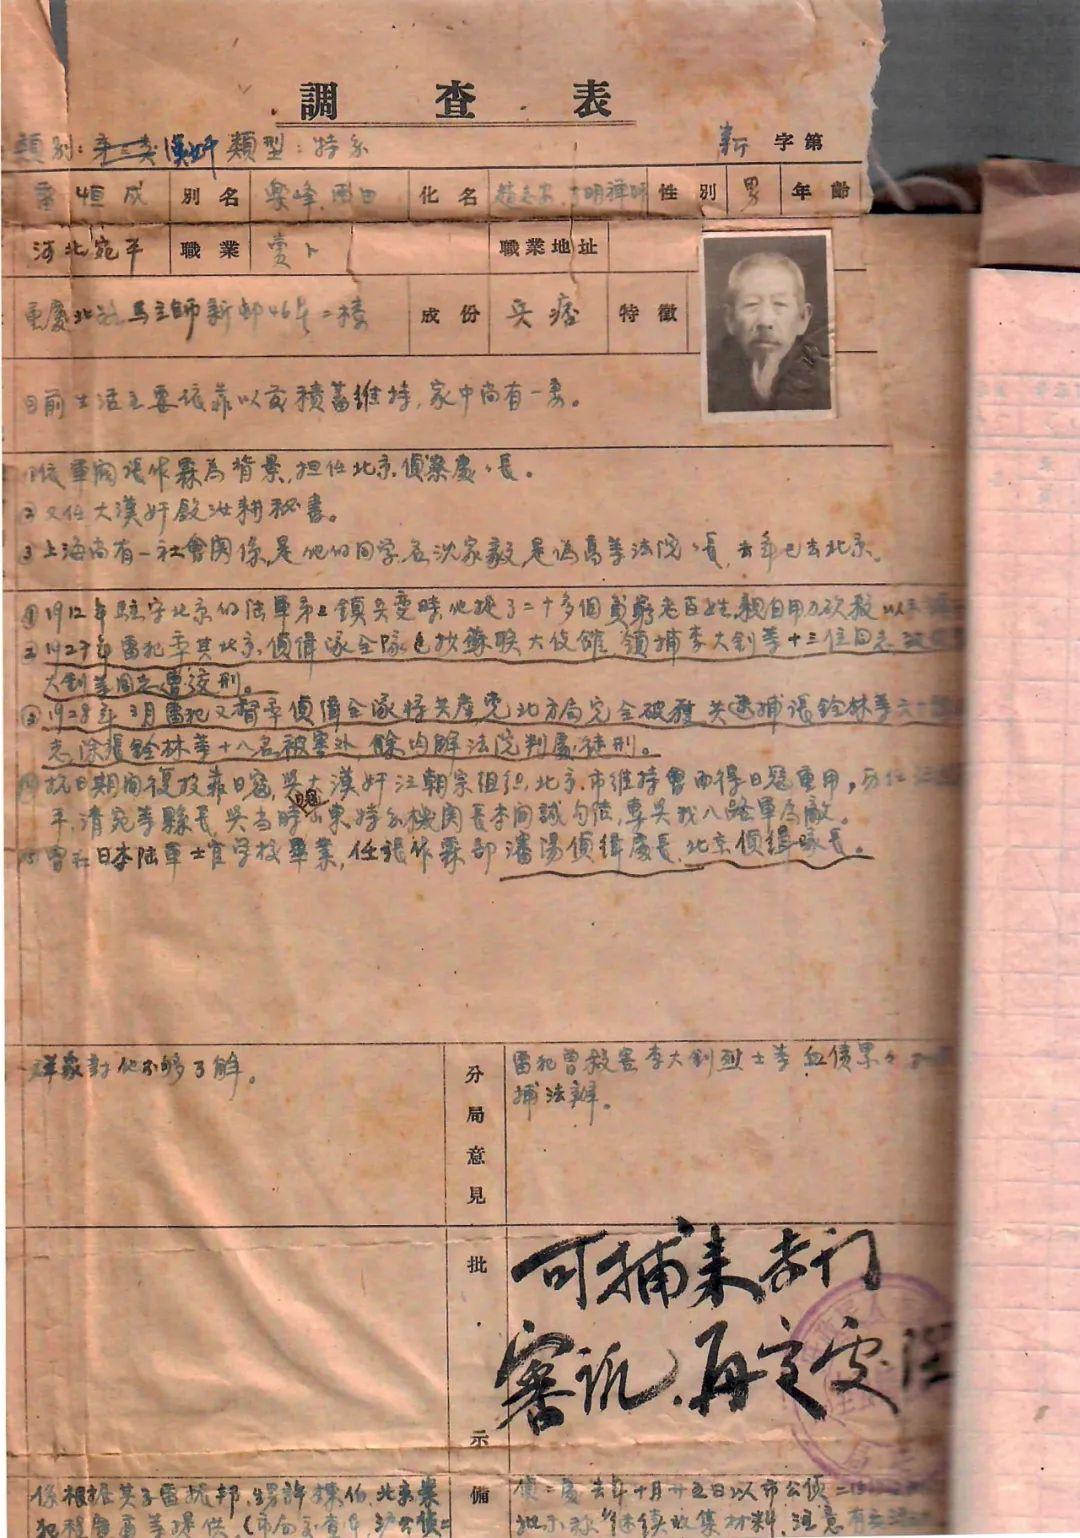 調查表
類別：漢奸 類型：特务
新 字第
雷恒成 別名 樂峰、雨田 化名 趙志安、明禪師 性別 男 年齡
河北宛平 職業 賣卜 職業地址
重慶北路馬立師新邨46号二楼 成份 兵痞 特徵
目前生活主要依靠以前積蓄維持，家中尚有一妻。
①依軍閥張作霖為背景，担任北京偵緝處處長。
②又任大漢奸殷汝耕秘書。
③上海尚有一社會関係，是他的同学名沈家彝，是偽高等法院院長，去年已去北京。
①1912年駐守北京的陸軍第三鎮兵變時，他捉了二十多個貧窮老百姓，親自用刀砍殺
②1927年雷犯率其北京偵緝隊全隊包抄蘇联大使館，領捕李大釗等十三位同志
大釗等同志遭絞刑。
③1928年3月雷犯又督率偵緝全隊将共産党北方局完全破獲，共逮捕張鉿林等六十
志，除張鉿林等十八名被害外，餘均解法院判處徒刑。
④抗日期間復投靠日寇，與大漢奸江朝宗組织北京市維持會而得日寇重用，历任
平，清宛等縣長，與当時山東特务機関長李間誠勾结，專與我八路軍為敵。
⑤曾在日本陸軍士官学校畢業，任張作霖部瀋陽偵緝處長，北京偵緝隊長。
群衆對他不够了解。
分局意見
雷犯曾殺害李大釗烈士等血债累々
捕法辦。
批示
可捕来专门
審訊，再定处
係根据其子雷振邦、甥許棟伯、北京
犯程 雷等提供
備
偵二處去年十月廿五日以市公偵二
批示称“继续收集材料，注意